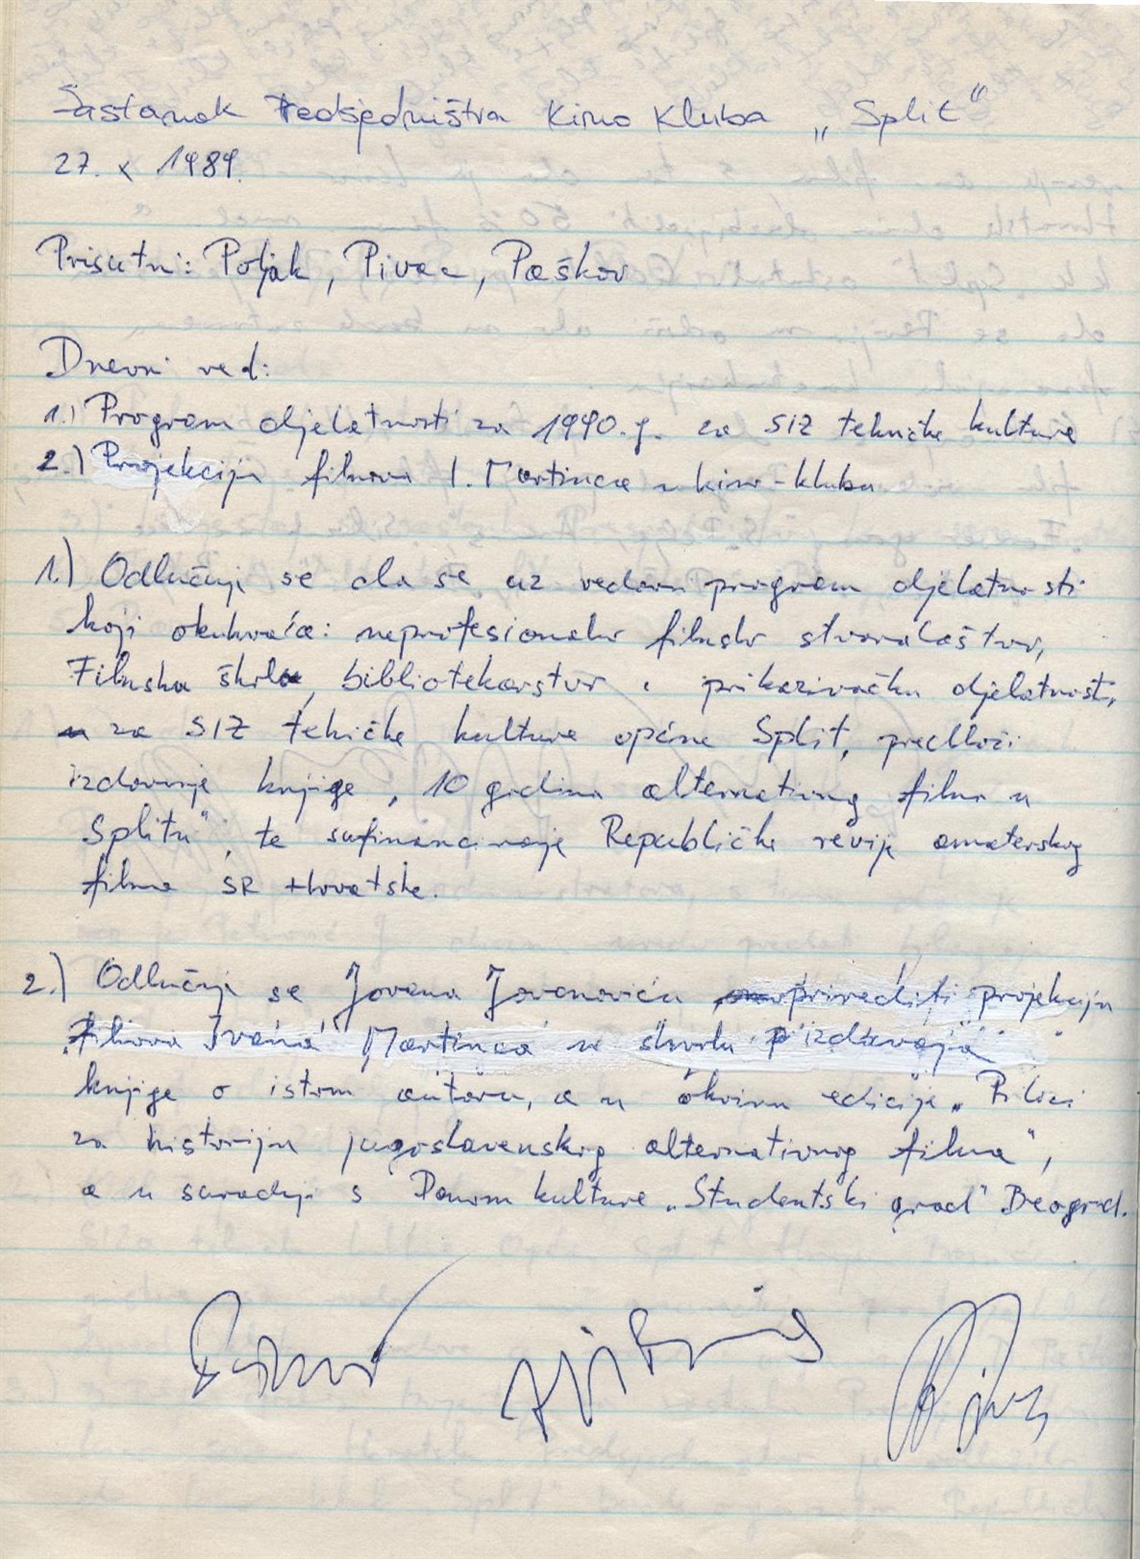 Sastanak Predsjedništva Kino Kluba „Split"
27. X 1989.
Prisutni: Poljak, Pivac, Paškov
Dnevni red:
1.) Program djelatnosti za 1990. g. za SIZ tehničke kulture
2.) Projekcija filmova I. Martinca u kino-klubu
1.) Odlučuje se da se uz redovni program djelatnosti
koji obuhvaća: neprofesionalno filmsko stvaralaštvo,
Filmsku školu, bibliotekarstvo i prikazivačku djelatnost,
za SIZ tehničke kulture općine Split, predloži
izdavanje knjige „10 godina alternativnog filma u
Splitu", te sufinanciranje Republičke revije amaterskog
filma SR Hrvatske.
2.) Odlučuje se Jovanu Jovanoviću prirediti projekciju
filmova Ivana Martinca u svrhu izdavanja
knjige o istom autoru, a u okviru edicije „Prilozi
za historiju jugoslavenskog alternativnog filma",
a u suradnji s Domom kulture „Studentski grad" Beograd.